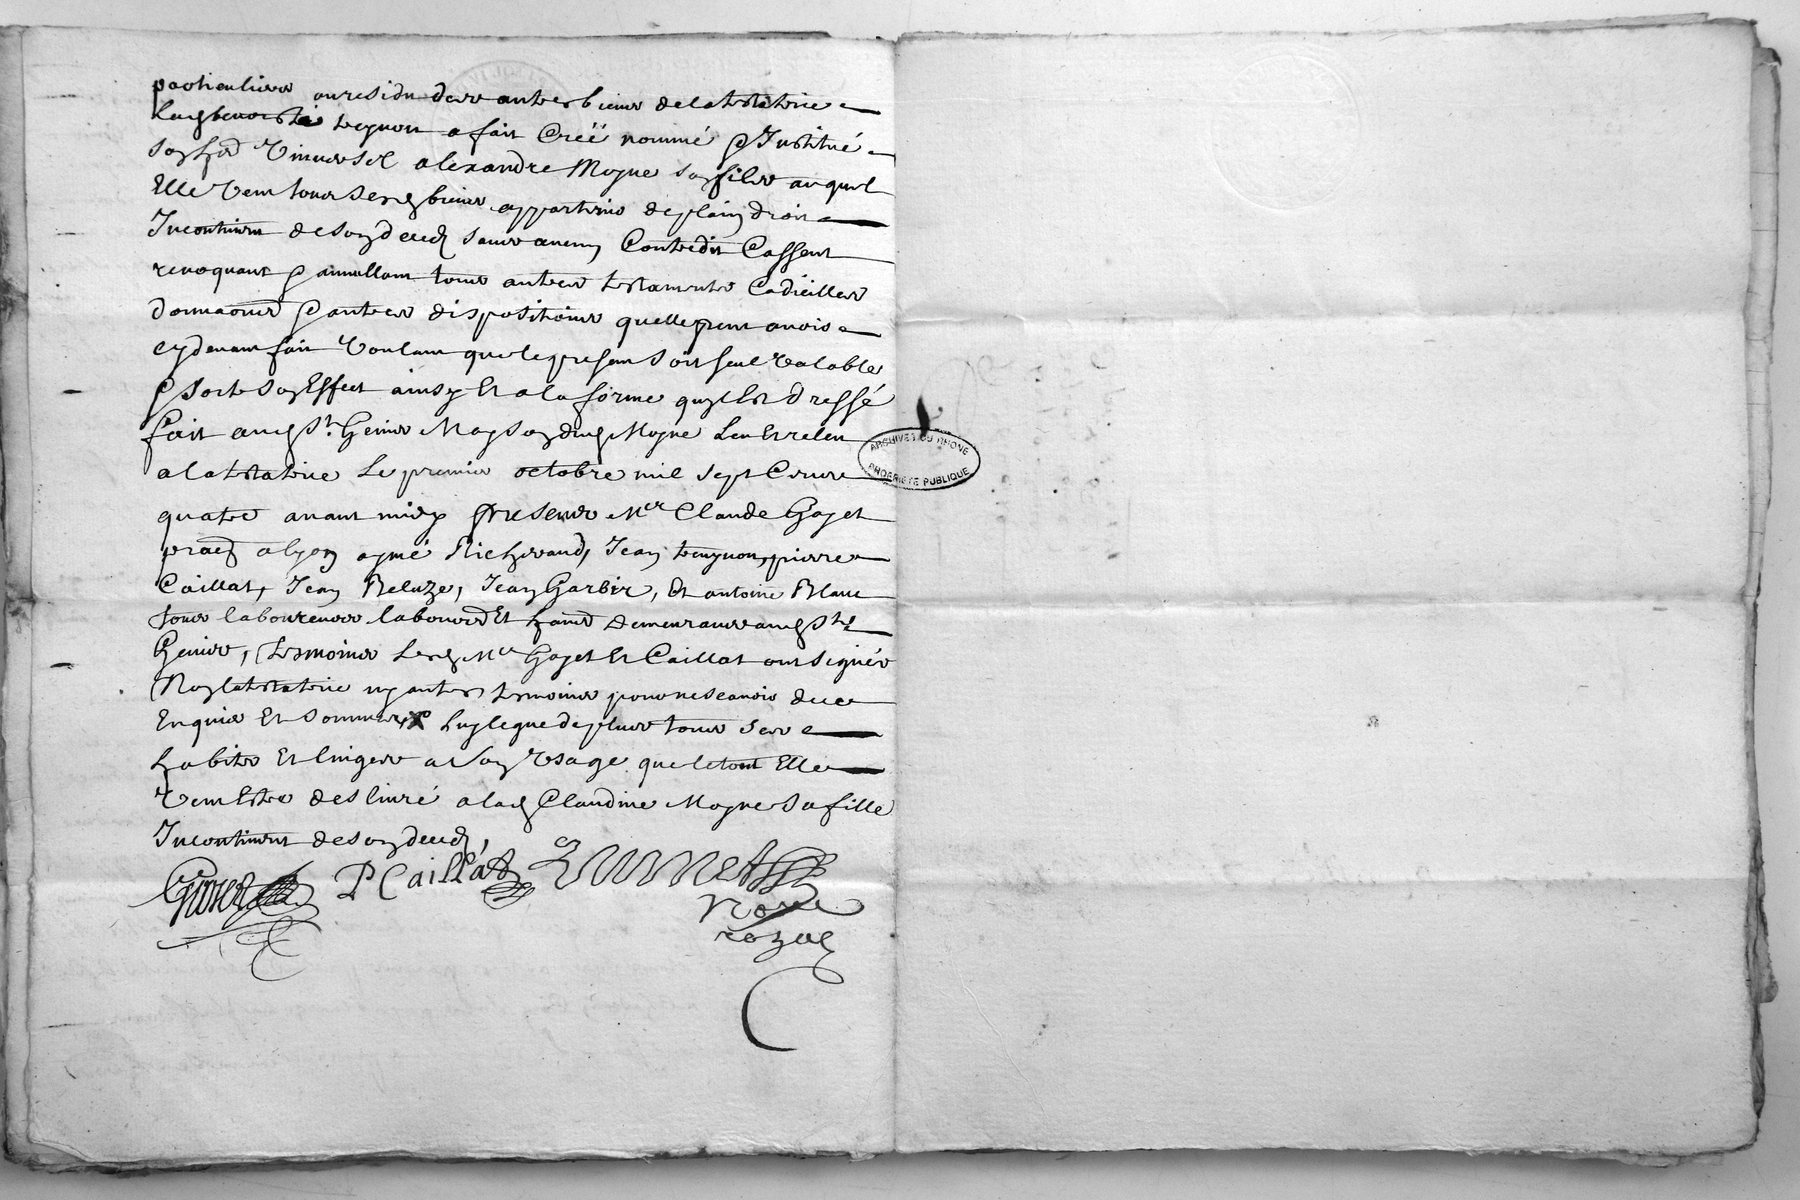 particuliere au residu de ses autres biens de latestatrice
lad benoiste teynon a fait Creé nommé & Institué
son her Vniversel alexandre Moyne son filz auquel
Elle Veut tous sesd biens appartenir de plain droit
Incontinent de son deced sans aucun Contredit Cassent
revoquant & annullant tous autres testaments Codicilles
donnaons & autres dispositions quelle peut avoir
cy devant fait Voulant que le present soit seul Valable
& sorte son Effect ainsy Et a la forme quyl est dressé
fait aud St. Genis Mayson dud Moyne Leu Et releu
a latestatrice Le premier octobre mil sept Cents
quatre avant midy presents Mer Claude Gayet
prated a lyon aymé Richerand, Jean teugnon, pierre
Caillat, Jean Beluze, Jean Garbir, Et antoine Blanc
tous laboureurs laboured Et hand demeurants aud St
Genis, tesmoins Lesd Me Gayet Et Caillat ont signés
Non latestatrice ny autres tesmoins pour ne scavoir de ce
Enquis Et sommes, luy legue de plus tous ses
habits Et linges a son Vsage que le tout Elle
Veut Estre deslivré a lad Claudine Moyne sa fille
Incontinent de son deced,
P Caillat
Nore
royal
ARCHIVES DU RHONE
PROPRIETE PUBLIQUE